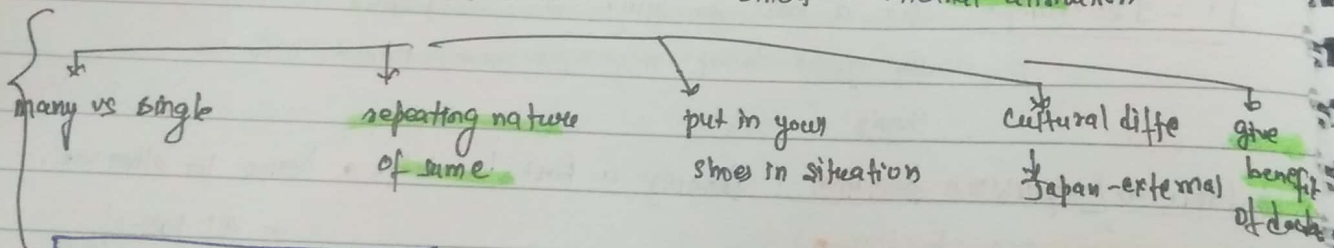 many vs single
repeating nature
of same
put in your
shoes in situation
cultural diffe
Japan-external
give
benefit
of